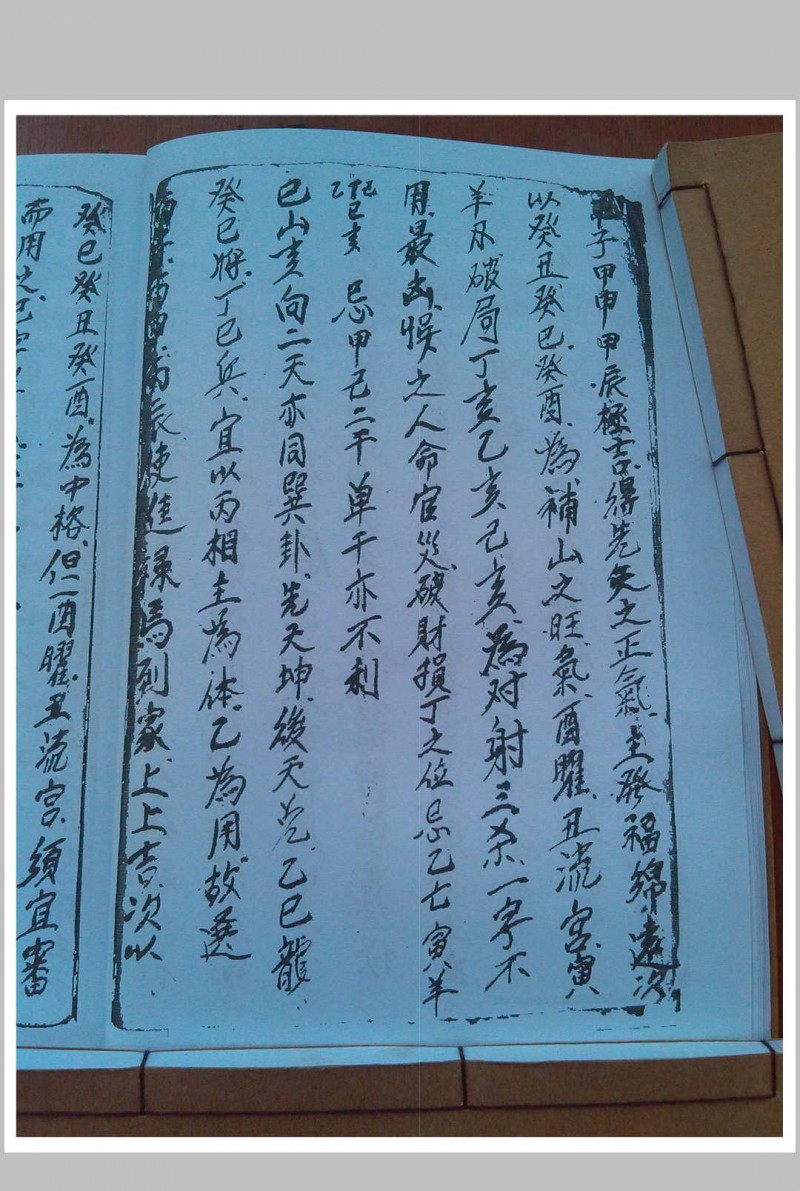 子甲申甲辰極吉得先天之正氣主發福綿遠次
以癸丑癸巳癸酉為補山之旺氣酉曜丑流宮寅
羊刃破局丁亥乙亥己亥為对射三杀一字不
用最凶悞之人命官災破財損丁之位忌乙七寅羊
巳亥 忌甲己二干单干亦不利
巳山亥向二天亦同巽卦先天坤後天兌乙巳龍
癸巳將丁巳兵宜以丙相主為体乙為用故選
丙申丙辰使進祿馬到家上上吉次以
癸巳癸丑癸酉為中格但酉曜丑流宮須宜審
而用之